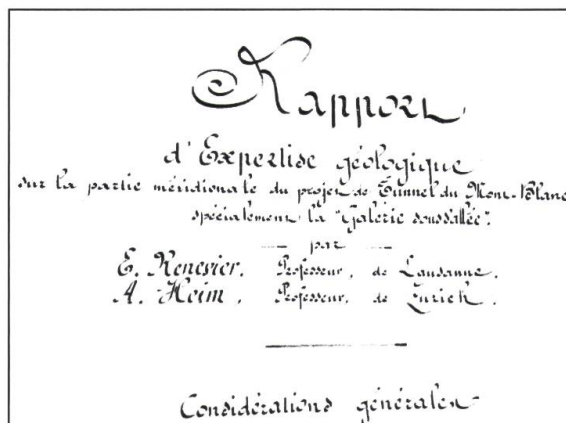 Rapport
d'Expertise géologique
sur la partie méridionale du projet de Tunnel du Mont-Blanc
spécialement la "Galerie sous vallée".
par
E. Renevier, Professeur, de Lausanne,
A. Heim, Professeur, de Zurich.
Considérations générales